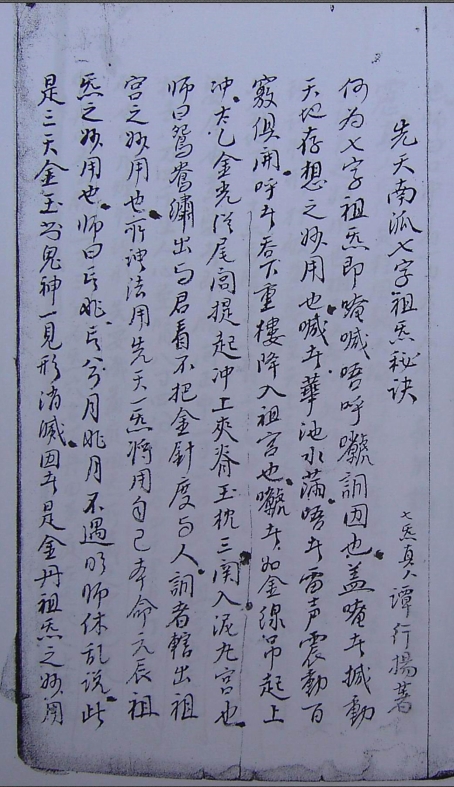 先天南派七字祖炁秘诀
七炁真人譚行揚著
何为七字祖炁即唵喊唔呼囐訶因也盖唵者搣動
天地存想之妙用也喊者華池水满唔者雷声震動百
竅俱開呼者吞下重樓降入祖宫也囐者如金線吊起上
冲太乙金光從尾閭提起冲上夾脊玉枕三関入泥丸宫也
师曰鴛鴦繡出与君看不把金針度与人訶者轄出祖
宫之妙用也所謂法用先天一炁將用自己本命元辰祖
炁之妙用也师曰 月 月不遇明师休乱说此
是三天金玉 鬼神一見形消滅因者是金丹祖炁之妙用